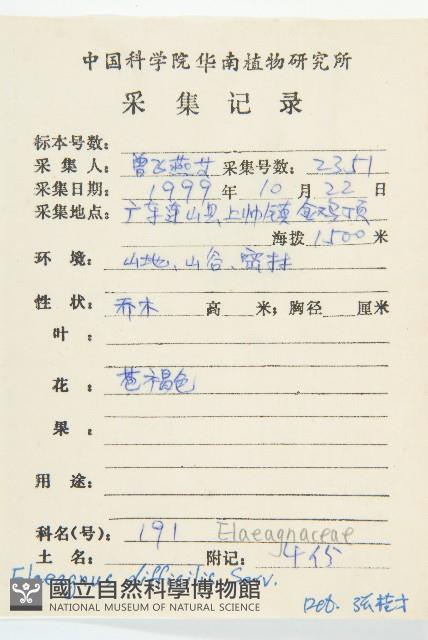 中国科学院华南植物研究所
采集记录
标本号数：
采集人：曾飞燕 采集号数：2351
采集日期：1999年10月22日
采集地点：广东连山县上帅镇金鸡顶
海拨1500米
环境：山地、山谷、密林
性状：乔木 高 米；胸径 厘米
叶：
花：苞褐色
果：
用途：
科名(号)：191 Elaeagnaceae
土名： 附记：4份
Elaeagnus difficilis Serv.
國立自然科學博物館
NATIONAL MUSEUM OF NATURAL SCIENCE
Det. 张桂才